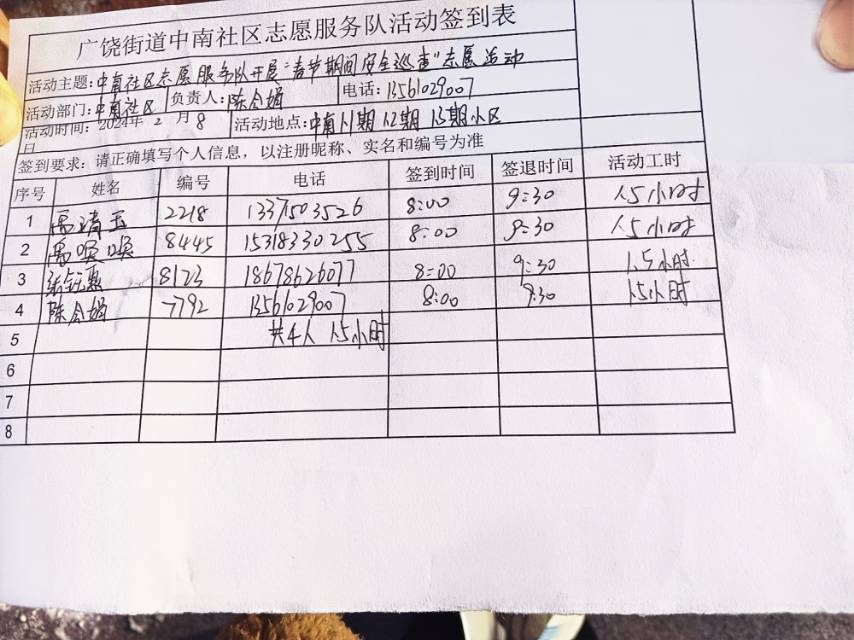 广饶街道中南社区志愿服务队活动签到表
活动主题:中南社区志愿服务队开展"春节期间安全巡查"志愿活动
活动部门:中南社区 负责人:陈会娟 电话:13561029007
活动时间:2024年 2 月 8 日 活动地点:中南11期 12期 13期小区
签到要求:请正确填写个人信息,以注册昵称、实名和编号为准
序号 姓名 编号 电话 签到时间 签退时间 活动工时
1 2218 13371503526 8:00 9:30 1.5小时
2 8445 15318330255 8:00 9:30 1.5小时
3 8123 18678626077 8:00 9:30 1.5小时
4 陈会娟 7792 13561029007 8:00 9:30 1.5小时
5 共4人 1.5小时
6
7
8